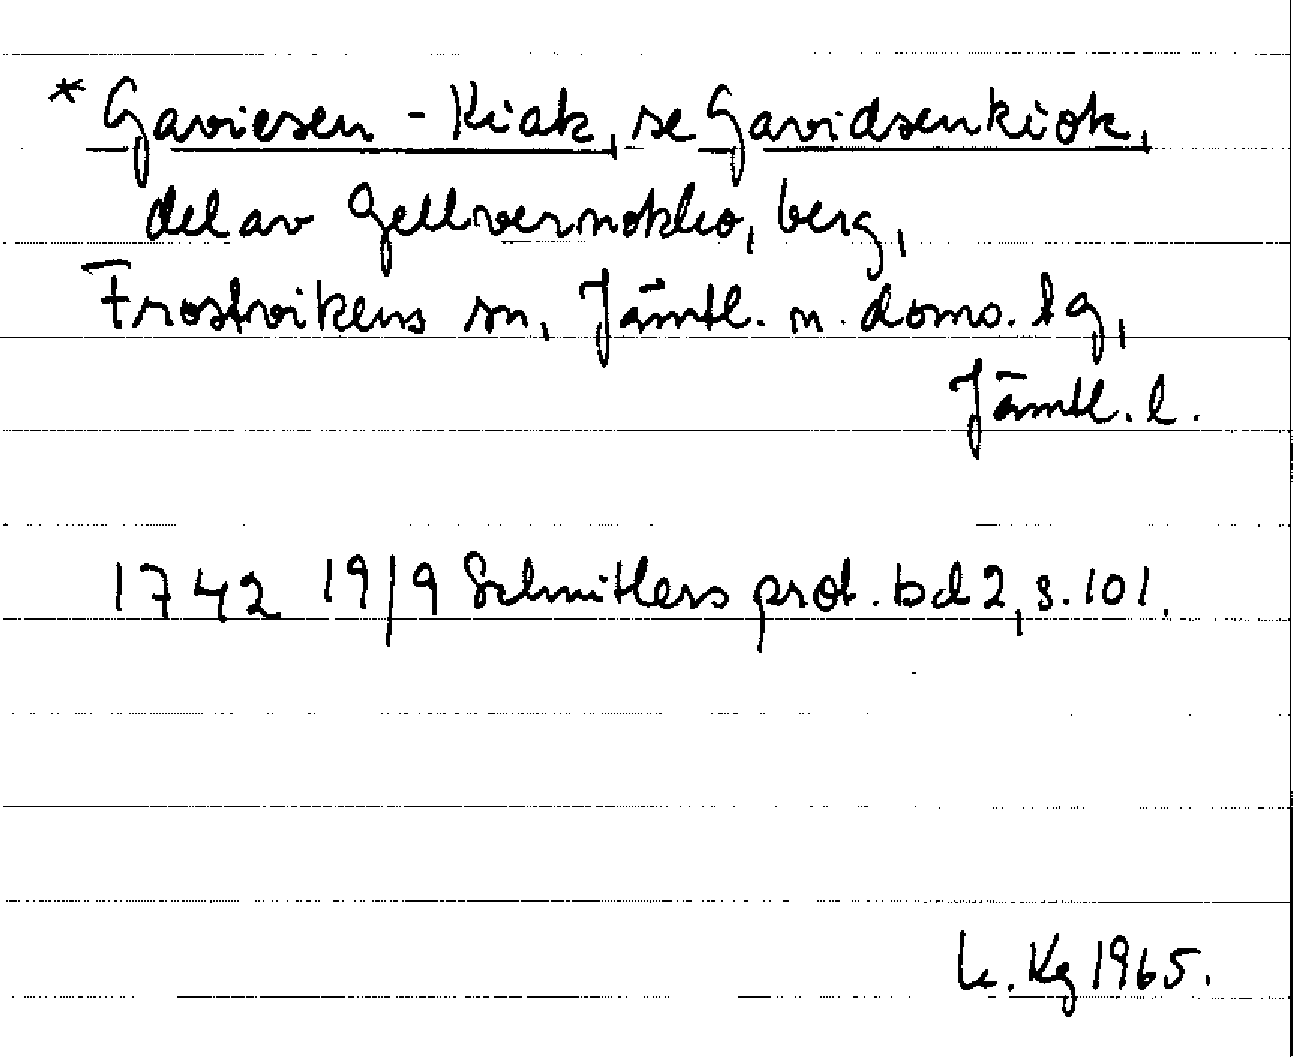 * Gaviesen - Kiak, se Gavidsenkiok,
del av Gellvernokko, berg,
Frostvikens sn, Jämtl. n. doms. lg,
Jämtl. l.
1742 19/9 Schnitlers prot. bd 2, s. 101.
k. Kg 1965.